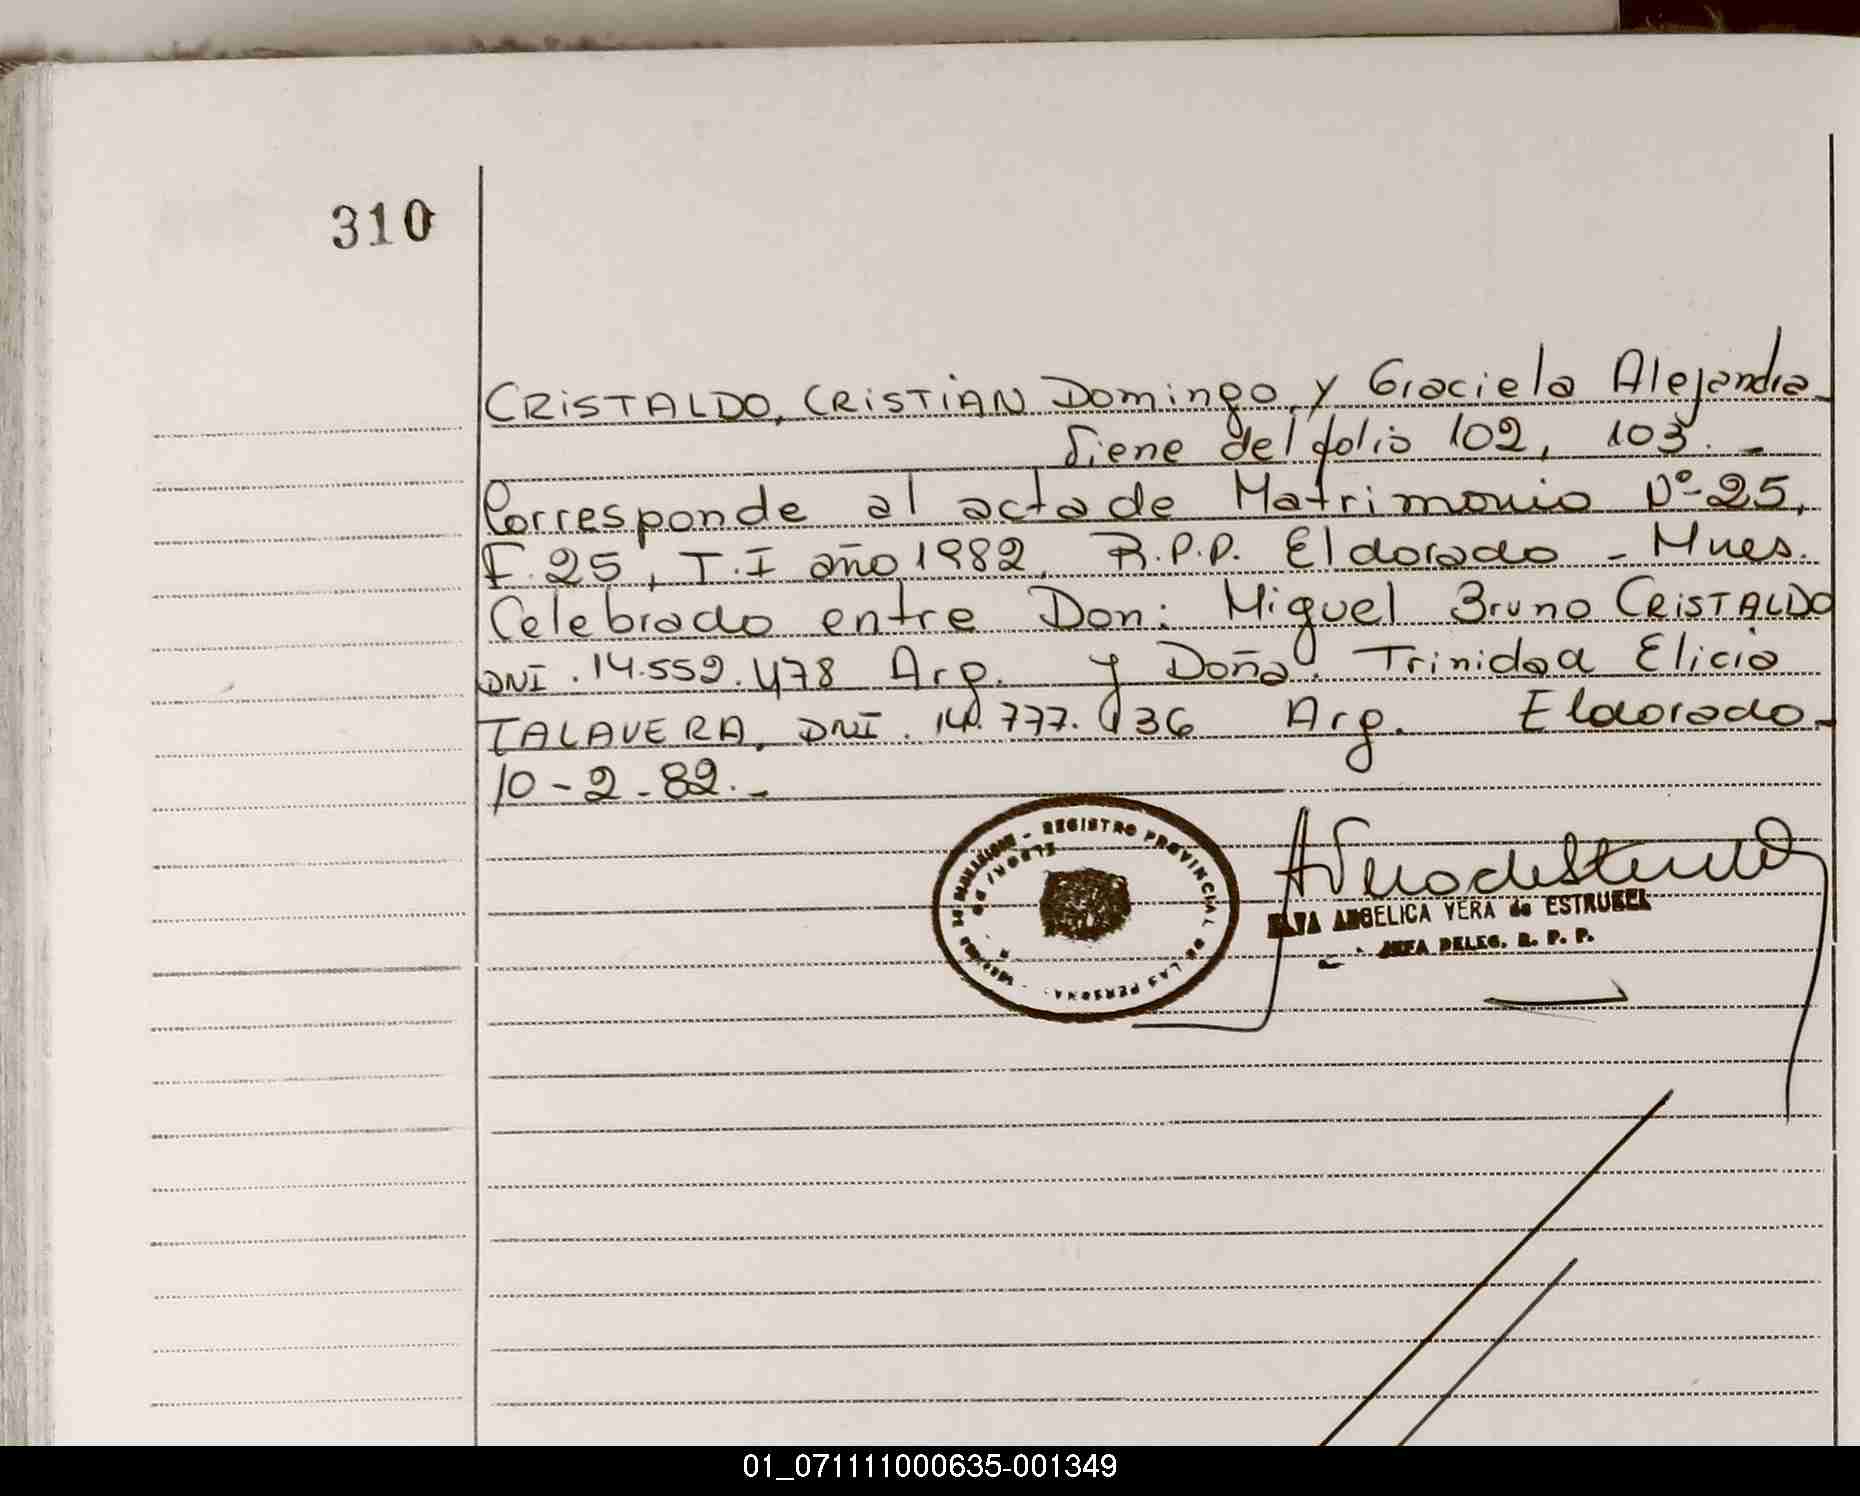 310
CRISTALDO, CRISTIAN Domingo, y Graciela Alejandra-
Viene del folio 102, 103.-
Corresponde al acta de Matrimonio Nº-25,
F.25, T.I año 1982, R.P.P. Eldorado - Mnes.
Celebrado entre Don: Miguel Bruno CRISTALDO
DNI. 14.559.478 Arg. y Doña. Trinidad Elicia
TALAVERA, DNI. 14.777.136 Arg. Eldorado-
10-2-82.-
REGISTRO PROVINCIAL DE LAS PERSONAS
ANGELICA VERA de ESTRUBEL
JEFA DELEG. R. P. P.
01_071111000635-001349